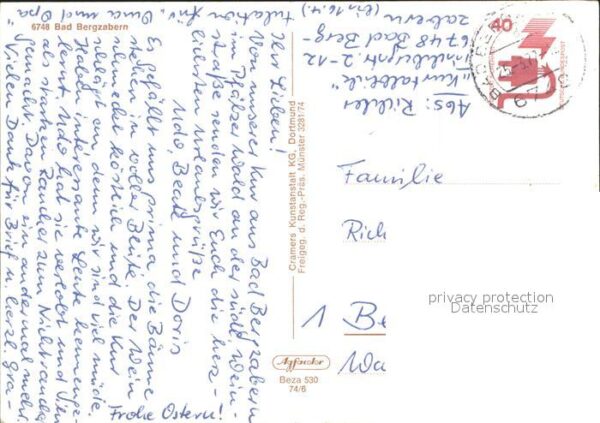 6748 Bad Bergzabern
Ihr Lieben!
Von unserer Kur aus Bad Bergzabern
im Pfälzer Wald an der südl. Wein-
straße senden wir Euch die herz-
lichsten Urlaubsgrüße
Udo, Beate und Doris
Es gefällt uns prima, die Bäume
stehen in voller Blüte. Der Wein
schmeckt köstlich und die Kur
schlägt an, denn wir sind viel müde.
Haben interessante Leute kennenge-
lernt. Udo hat sie verlobt und
als starken Raucher zum Nichtraucher
gemacht. Davon ein andermal mehr.
Vielen Dank für Brief u. herzl. Gra-
tulation für "Oma und Opa"
Frohe Ostern!
Abs: Richter
"Kurtalblick"
2-12
6748 Bad Berg-
zabern
(bis 16.4.)
Cramers Kunstanstalt KG, Dortmund
Freigeg. d. Reg.-Präs. Münster 3281/74
Agfacolor
Beza 530
74/6
40
DEUTSCHE BUNDESPOST
Familie
Rich
1 Be
Wa
privacy protection
Datenschutz